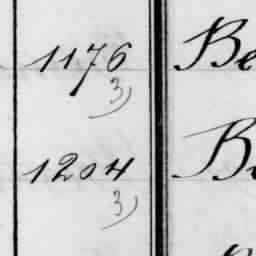 1176 Be
3)
1204 B
3)